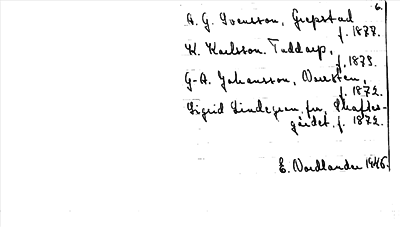 6.
A. G. Svensson, Grepstad
f. 1877.
K. Karlsson. Taddarp,
f. 1873.
G-A. Johansson,
f. 1872.
Sigrid Lindegren, fru,
gärdet, f. 1872.
E. Nordlander 1946.